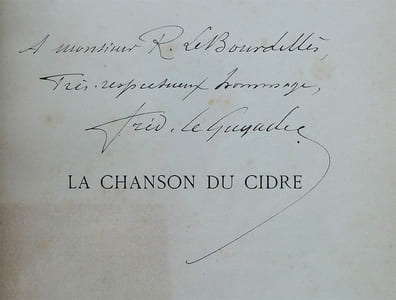 A monsieur R. Le Bourdellès,
Très-respectueux hommage,
Fréd. Le Guyader
LA CHANSON DU CIDRE